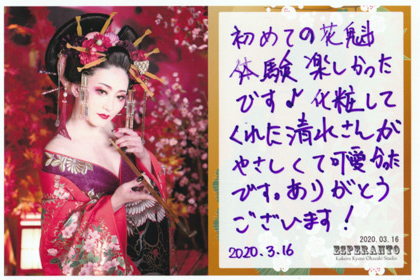 初めての花魁
体験 楽しかった
です♪ 化粧して
くれた清水さんが
やさしくて可愛かった
です。ありがとう
ございます!
2020.3.16
2020. 03. 16
ESPERANTO